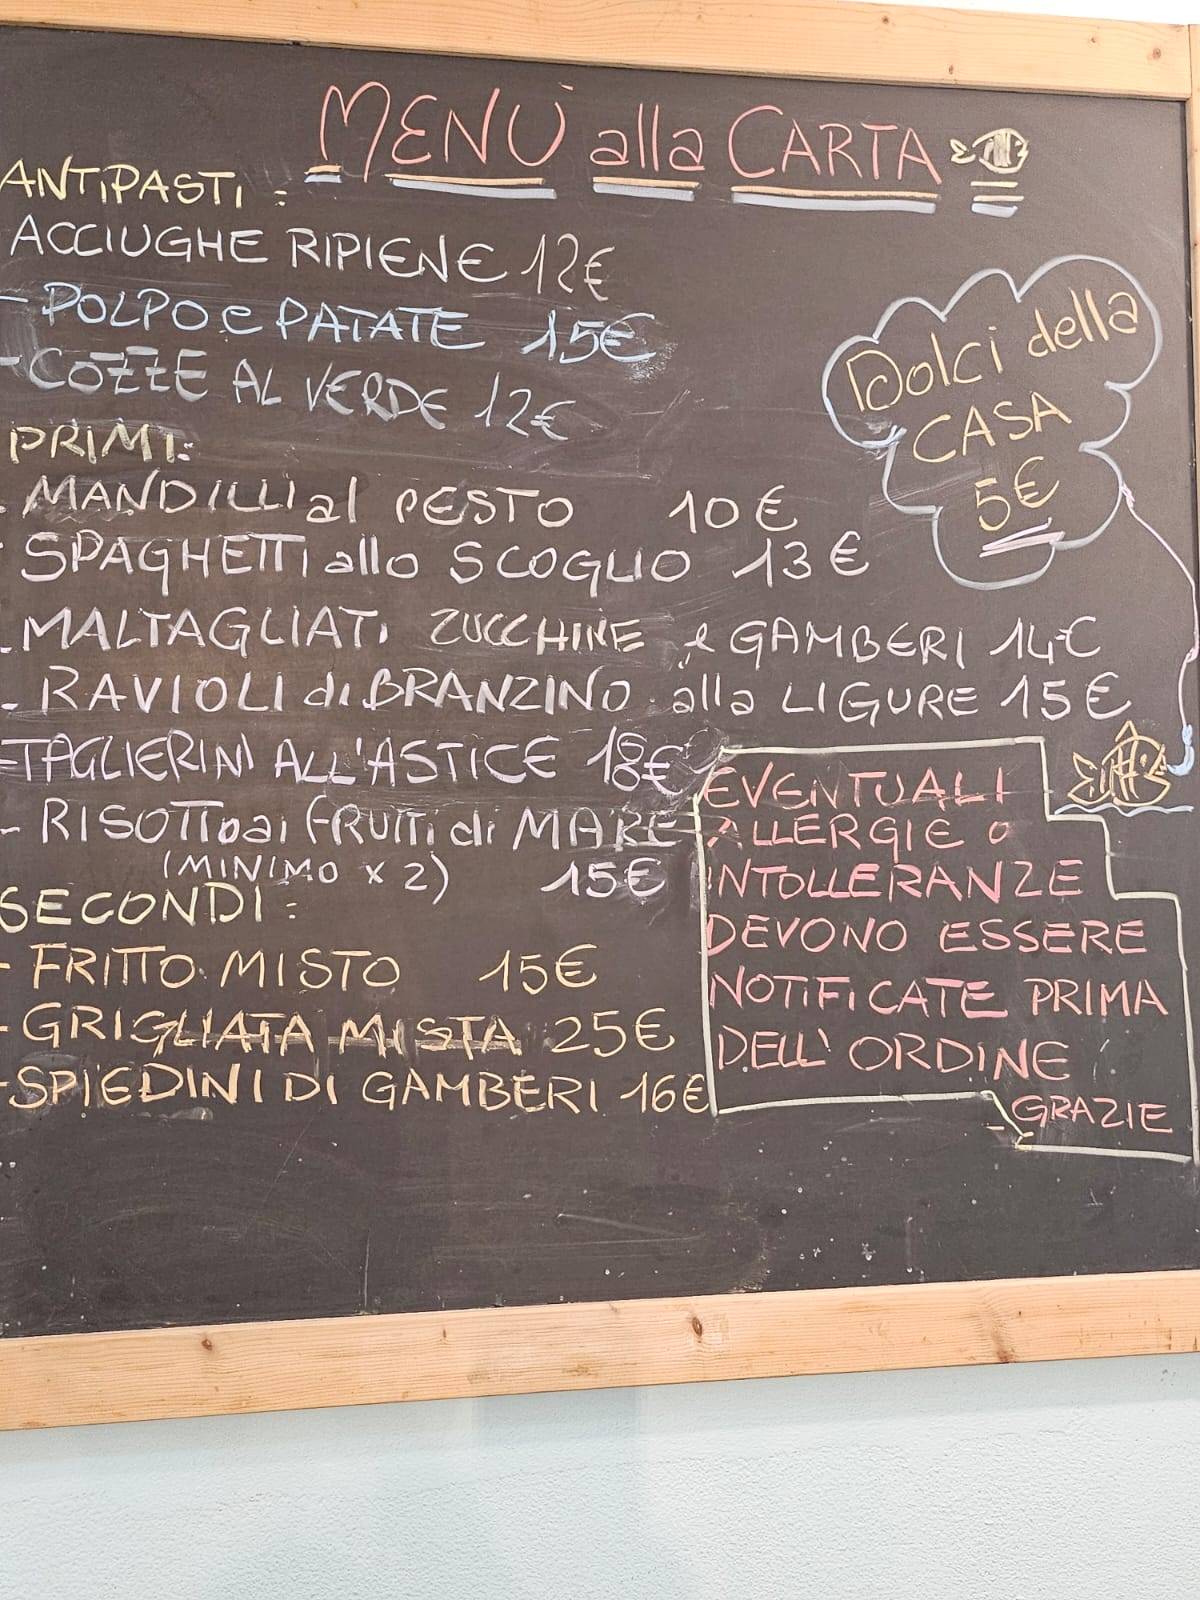 MENÙ alla CARTA
ANTIPASTI:
ACCIUGHE RIPIENE 12€
- POLPO e PATATE 15€
- COZZE AL VERDE 12€
PRIMI:
- MANDILLI al PESTO 10€
- SPAGHETTI allo SCOGLIO 13€
- MALTAGLIATI ZUCCHINE e GAMBERI 14€
- RAVIOLI di BRANZINO alla LIGURE 15€
- TAGLIERINI ALL'ASTICE 18€
- RISOTTO ai FRUTTI di MARE
(MINIMO x 2) 15€
SECONDI:
- FRITTO MISTO 15€
- GRIGLIATA MISTA 25€
- SPIEDINI DI GAMBERI 16€
Dolci della
CASA
5€
EVENTUALI
ALLERGIE O
INTOLLERANZE
DEVONO ESSERE
NOTIFICATE PRIMA
DELL' ORDINE
GRAZIE